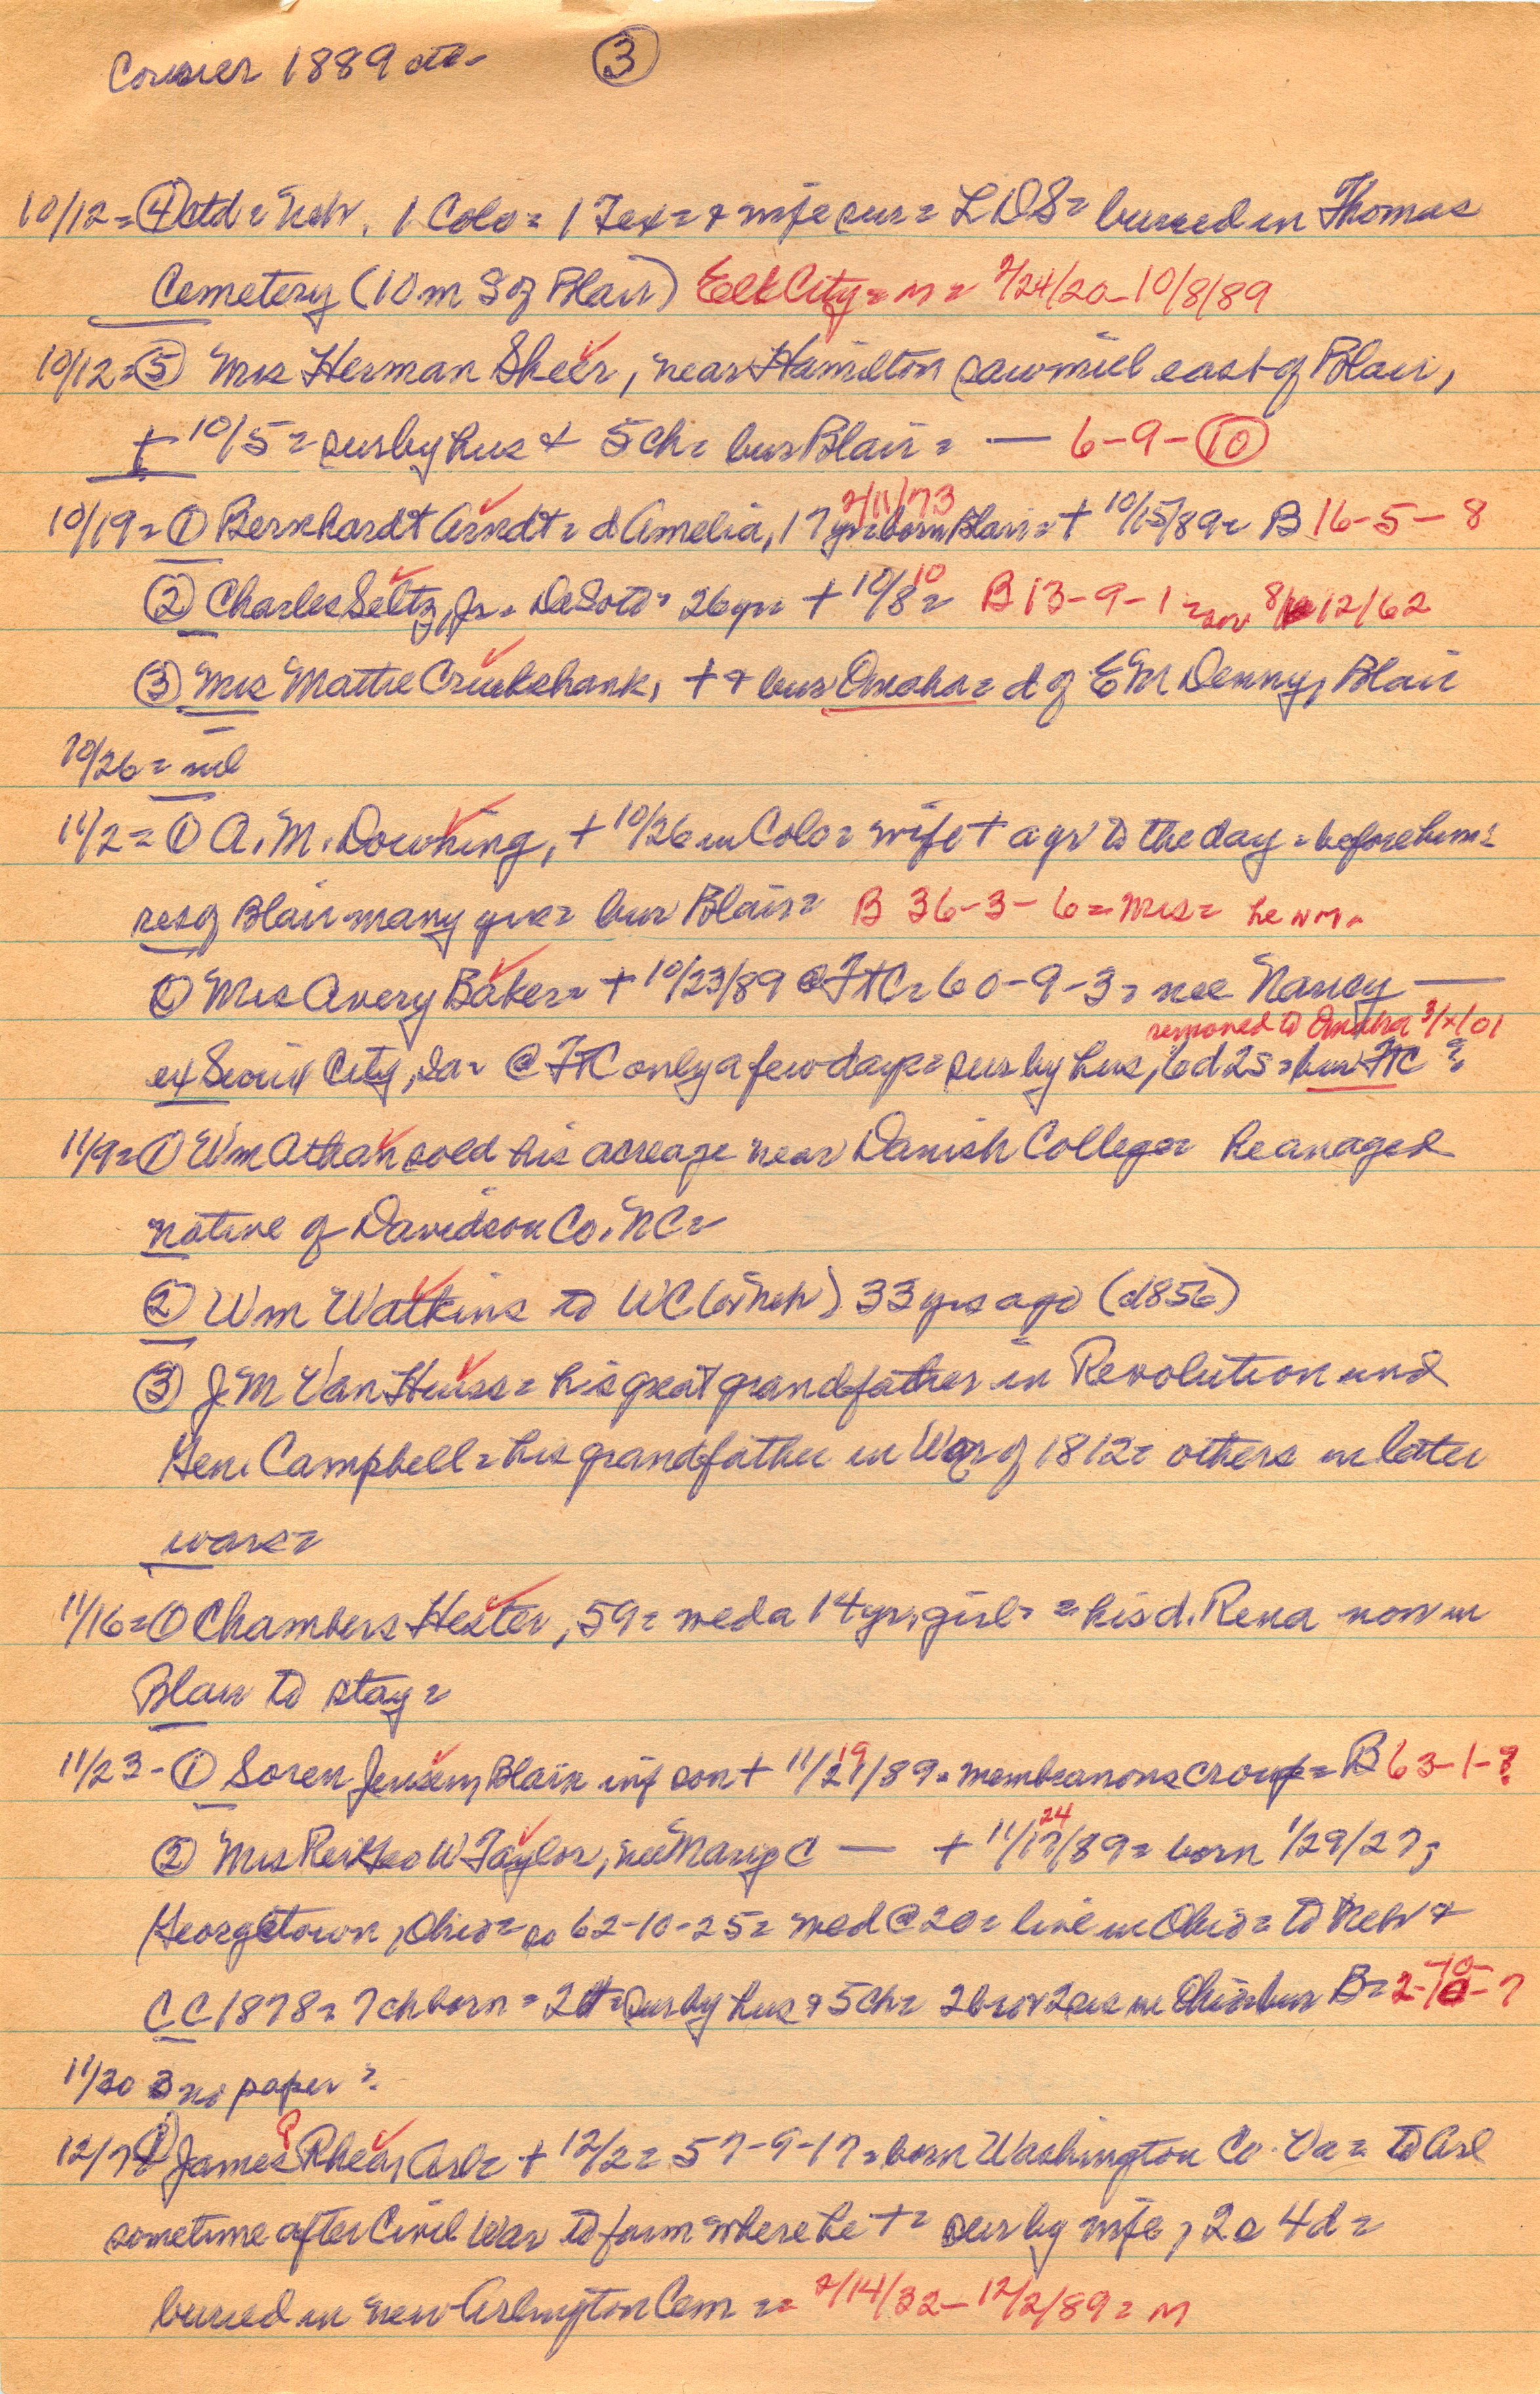 Courier 1889 ctd - ③
10/12 = ④ ctd = Neb. 1 Colo = 1 Tex = + wife sur = LDS = buried in Thomas
Cemetery (10 m S of Blair) Elk City = m = 2/24/20 - 10/8/89
10/12 = ⑤ Mrs Herman Sheer, near Hamilton sawmill east of Blair,
+ 10/5 = sur by hus + 5 ch = bur Blair = — 6-9-⑩
2/11/73
10/19 = ① Bernhardt Arndt = d Amelia, 17 yr = born Blair = + 10/15/89 = B 16-5-8
10
② Charles Seltz, Jr = DeSoto = 26 yr = + 10/8 = B 13-9-1 = 8/12/62
③ Mrs Mattie Cruikshank, + + bur Omaha = d of EM Denny, Blair
10/26 = nil
11/2 = ① A. M. Downing, + 10/26 in Colo = wife + a yr to the day = before him =
res of Blair many yrs = bur Blair = B 36-3-6 = Mrs = he nm.
① Mrs Avery Baker = + 10/23/89 @ FtC = 60-9-3 = nee Nancy —
removed to Omaha 3/x/01
ex Sioux City, Ia = @ FtC only a few days = sur by hus, 6d 2s = bur FtC ?
11/9 = ① Wm Athan sold his acreage near Danish College = he an aged
native of Davidson Co. NC =
② Wm Watkins to WC (or Neb) 33 yrs ago (1856)
③ J. M Van Huss = his great grandfather in Revolution und
Gen. Campbell = his grandfather in War of 1812 = others in later
wars =
11/16 = ① Chambers Hester, 59 = wed a 14 yr. girl = = his d. Rena now in
Blair to stay =
19
11/23 - ① Soren Jensen, Blair inf son + 11/21/89 = membranous croup = B 63-1-?
24
② Mrs W Taylor, nee Mary C — + 11/17/89 = born 1/29/27,
Georgetown, Ohio = so 62-10-25 = wed @ 20 = live in Ohio = to Neb +
CC 1878 = 7 ch born = 2 + = sur by hus + 5 ch = 2 bro + 2 sis in Ohio = bur B = 2-10-7
11/30 = no paper ?.
12/7 ① James Rhea, Arl = + 12/2 = 57-9-17 = born Washington Co. Va = to Arl
sometime after Civil War to farm where he + = sur by wife, 2s 4d =
buried in new Arlington Cem = = 2/14/32 - 12/2/89 = m